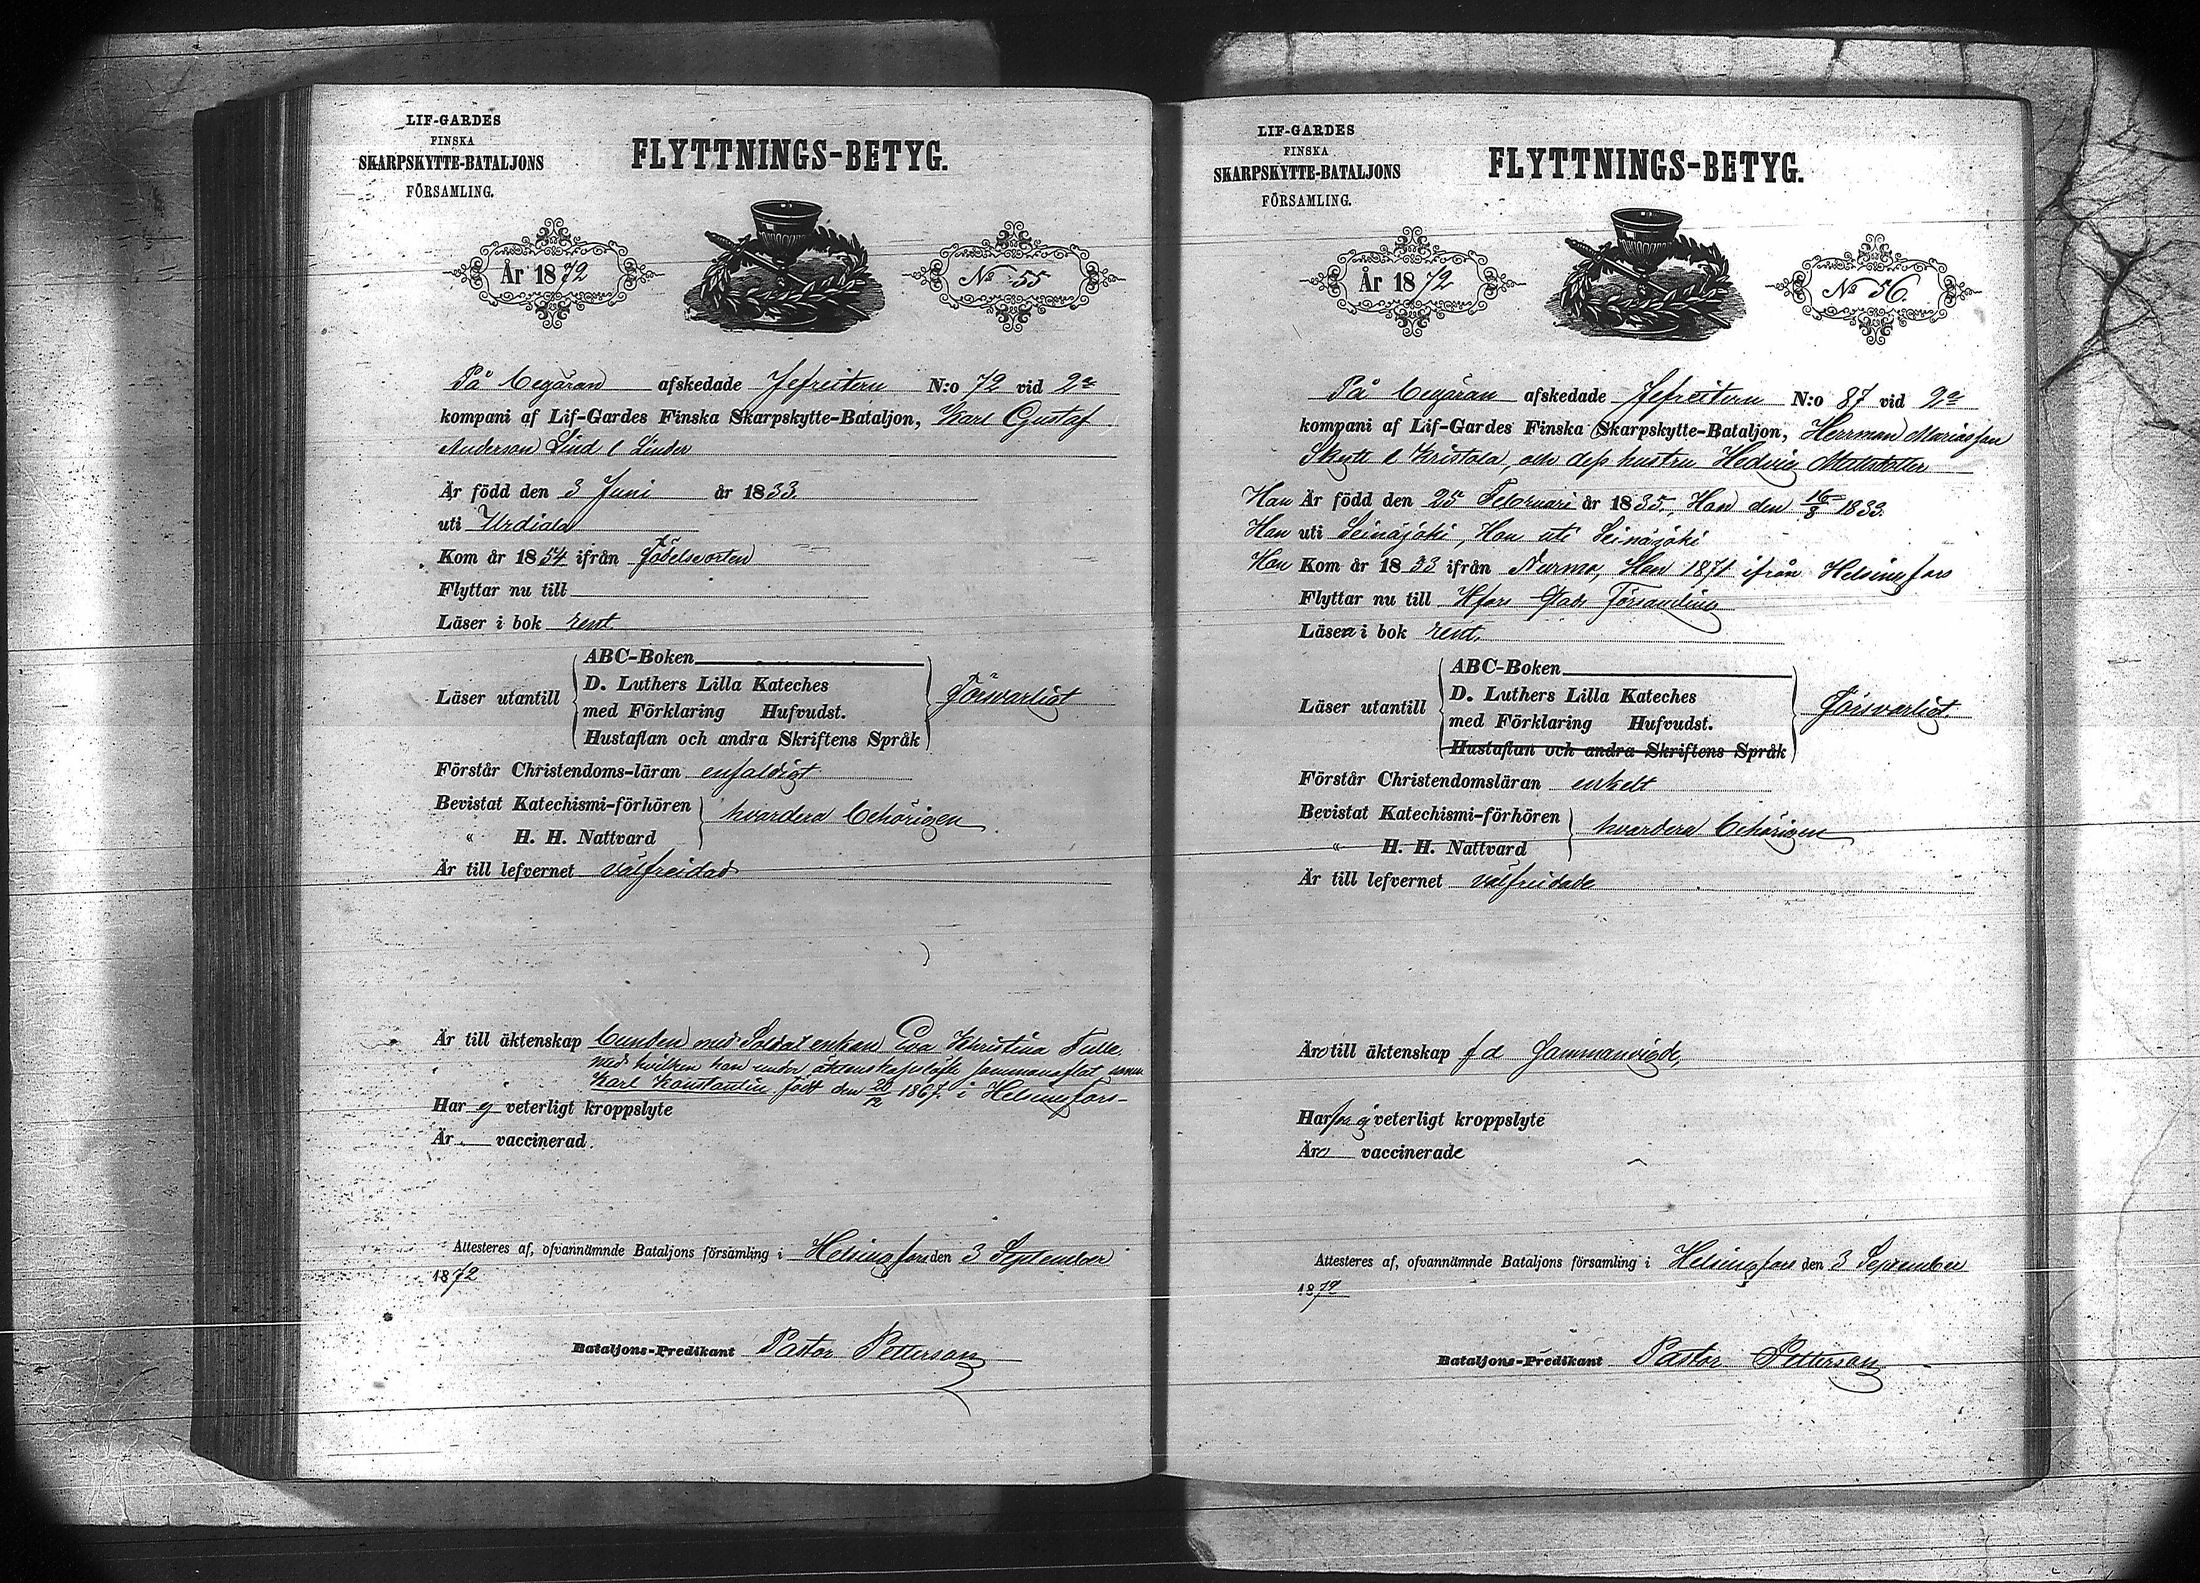 LIF-GARDES
FINSKA
SKARPSKYTTE-BATALJONS
FÖRSAMLING.
FLYTTNINGS-BETYG.
År 1872
No 55
På begäran afskedade Jefreitern N:o 72 vid 2a
kompani af Lif-Gardes Finska Skarpskytte-Bataljon, Karl Gustaf
Anderson Lind l Linder
Är född den 3 Juni år 1833.
uti Urdiala
Kom år 1854 ifrån
Flyttar nu till
Läser i bok rent
Läser utantill
ABC-Boken
D. Luthers Lilla Kateches
med Förklaring Hufvudst.
Hustaflan och andra Skriftens Språk
Försvarligt
Förstår Christendoms-läran enfaldigt
Bevistat Katechismi-förhören
" H. H. Nattvard
hvardera behörigen
Är till lefvernet välfreidad
Är till äktenskap bunden med Soldat enkan Eva Christina
med hvilken han under äktenskapslöfte sammanaflat sonen
Karl Konstantin född den 20/12 1867. i Helsingfors
Har ej veterligt kroppslyte
Är vaccinerad.
Attesteres af, ofvannämnde Bataljons församling i Helsingfors den 3 September
1872
Bataljons-Predikant Pastor Petterson
LIF-GARDES
FINSKA
SKARPSKYTTE-BATALJONS
FÖRSAMLING.
FLYTTNINGS-BETYG.
År 1872
No 56.
På begäran afskedade Jefreitern N:o 87 vid 2a
kompani af Lif-Gardes Finska Skarpskytte-Bataljon, Herrman Mariasson
Skytt l Kristola, och dess hustru Hedvig
Han Är född den 25 Februari år 1835, Hon den 16/8 1833.
Han uti Seinäjoki, Hon uti Seinäjoki
Han Kom år 1833 ifrån Nurmo, Hon 1871 ifrån Helsingfors
Flyttar nu till Hfors Stads Församling
Läsa i bok rent.
Läser utantill
ABC-Boken
D. Luthers Lilla Kateches
med Förklaring Hufvudst.
Hustaflan och andra Skriftens Språk
Försvarligt.
Förstår Christendomsläran enkelt
Bevistat Katechismi-förhören
" H. H. Nattvard
hvardera behörigen
Är till lefvernet välfreidade
Äro till äktenskap Sammanvigde,
Har ej veterligt kroppslyte
Äro vaccinerade
Attesteres af, ofvannämnde Bataljons församling i Helsingfors den 3 September
1872
Bataljons-Predikant Pastor Petterson